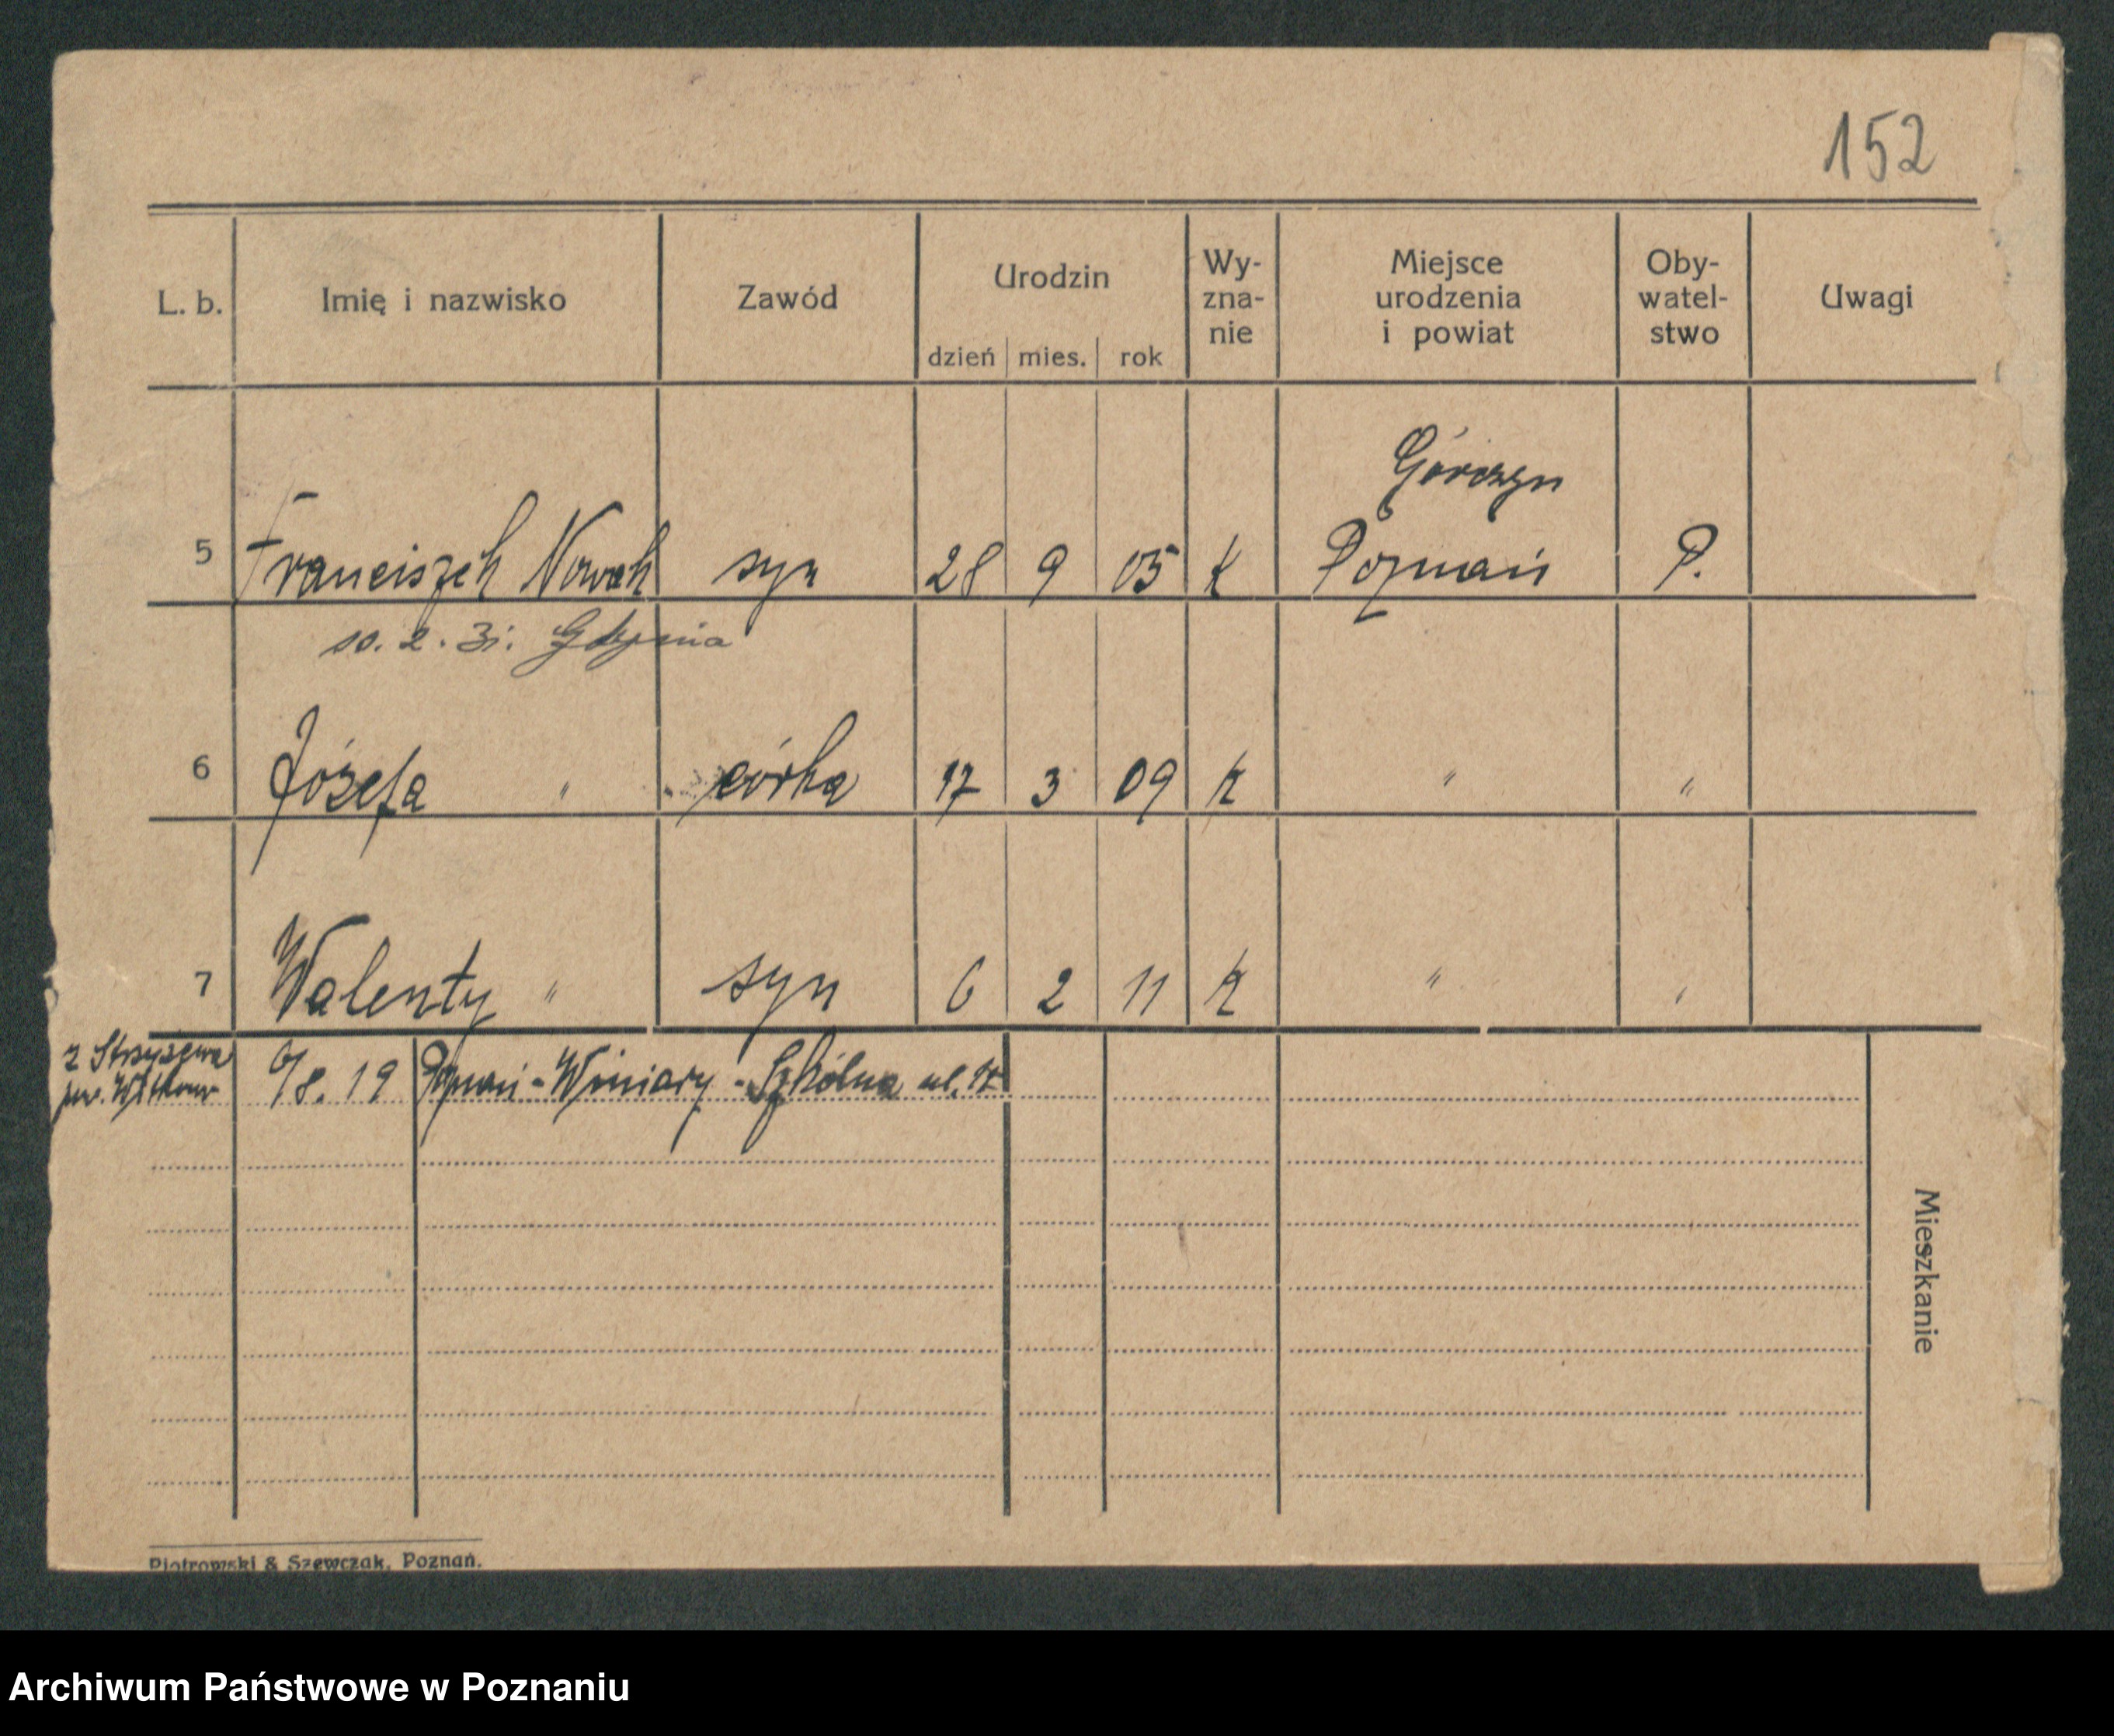 152
L. b. Imię i nazwisko Zawód Urodzin dzień mies. rok Wy- zna- nie Miejsce urodzenia i powiat Oby- watel- stwo Uwagi
Górczyn
5 Franciszek Nowak syn 28 9 05 K Poznań P.
10. 2. 31. Gdynia
6 Józefa " córka 17 3 09 K " "
7 Walenty " syn 6 2 11 K " "
z Strzyżewa
pow. Witkowo
6/8. 19 Poznań - Winiary - Szkólna ul.
Mieszkanie
Piotrowski & Szewczak, Poznań.
Archiwum Państwowe w Poznaniu